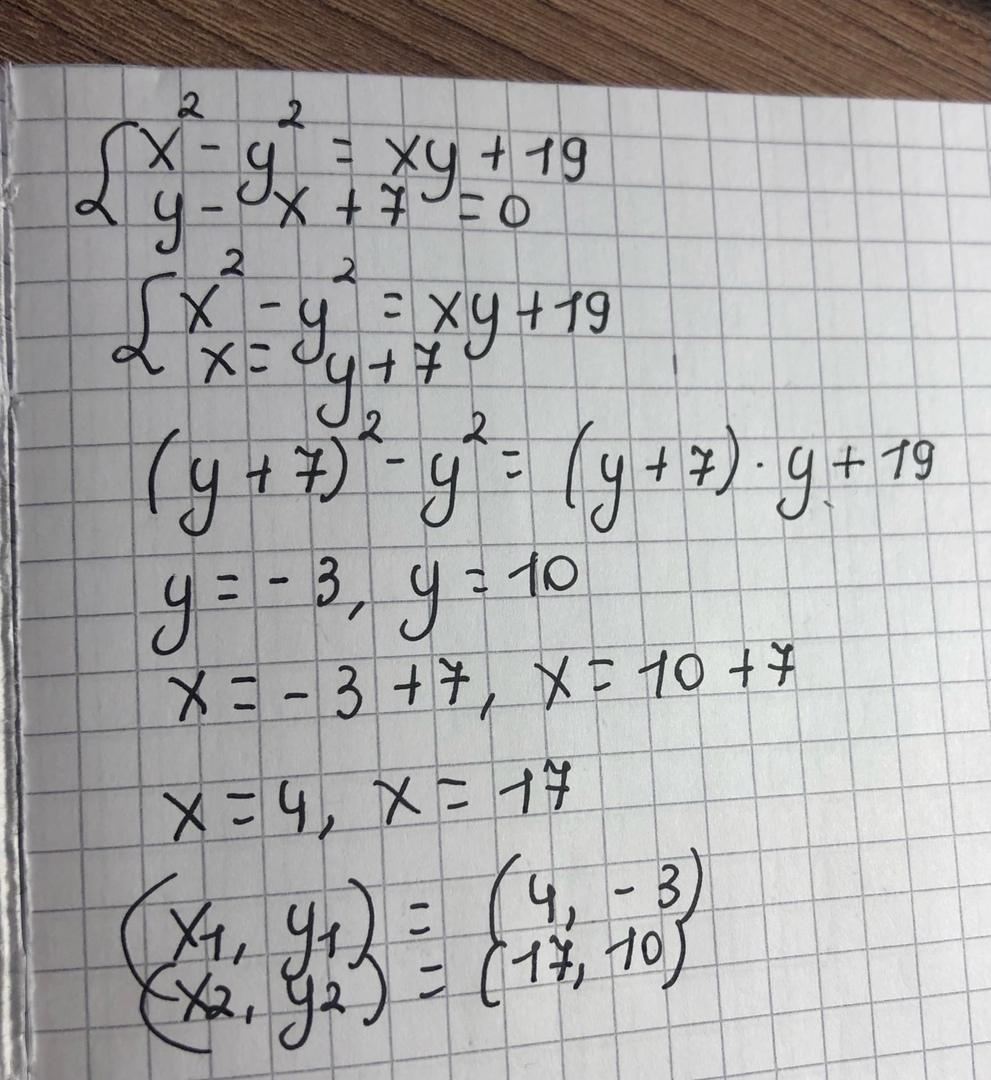 {x² - y² = xy + 19
y - x + 7 = 0
{x² - y² = xy + 19
x = y + 7
(y + 7)² - y² = (y + 7) · y + 19
y = - 3, y = 10
x = - 3 + 7, x = 10 + 7
x = 4, x = 17
(x1, y1) = (4, - 3)
(x2, y2) = (17, 10)